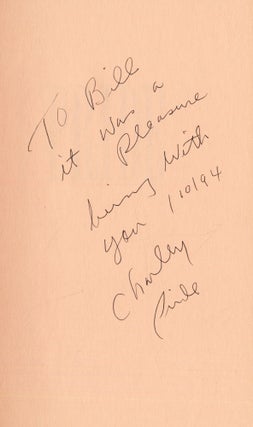 To Bill
it was a
Pleasure
being with
you 1/10/94
Charley
Pride